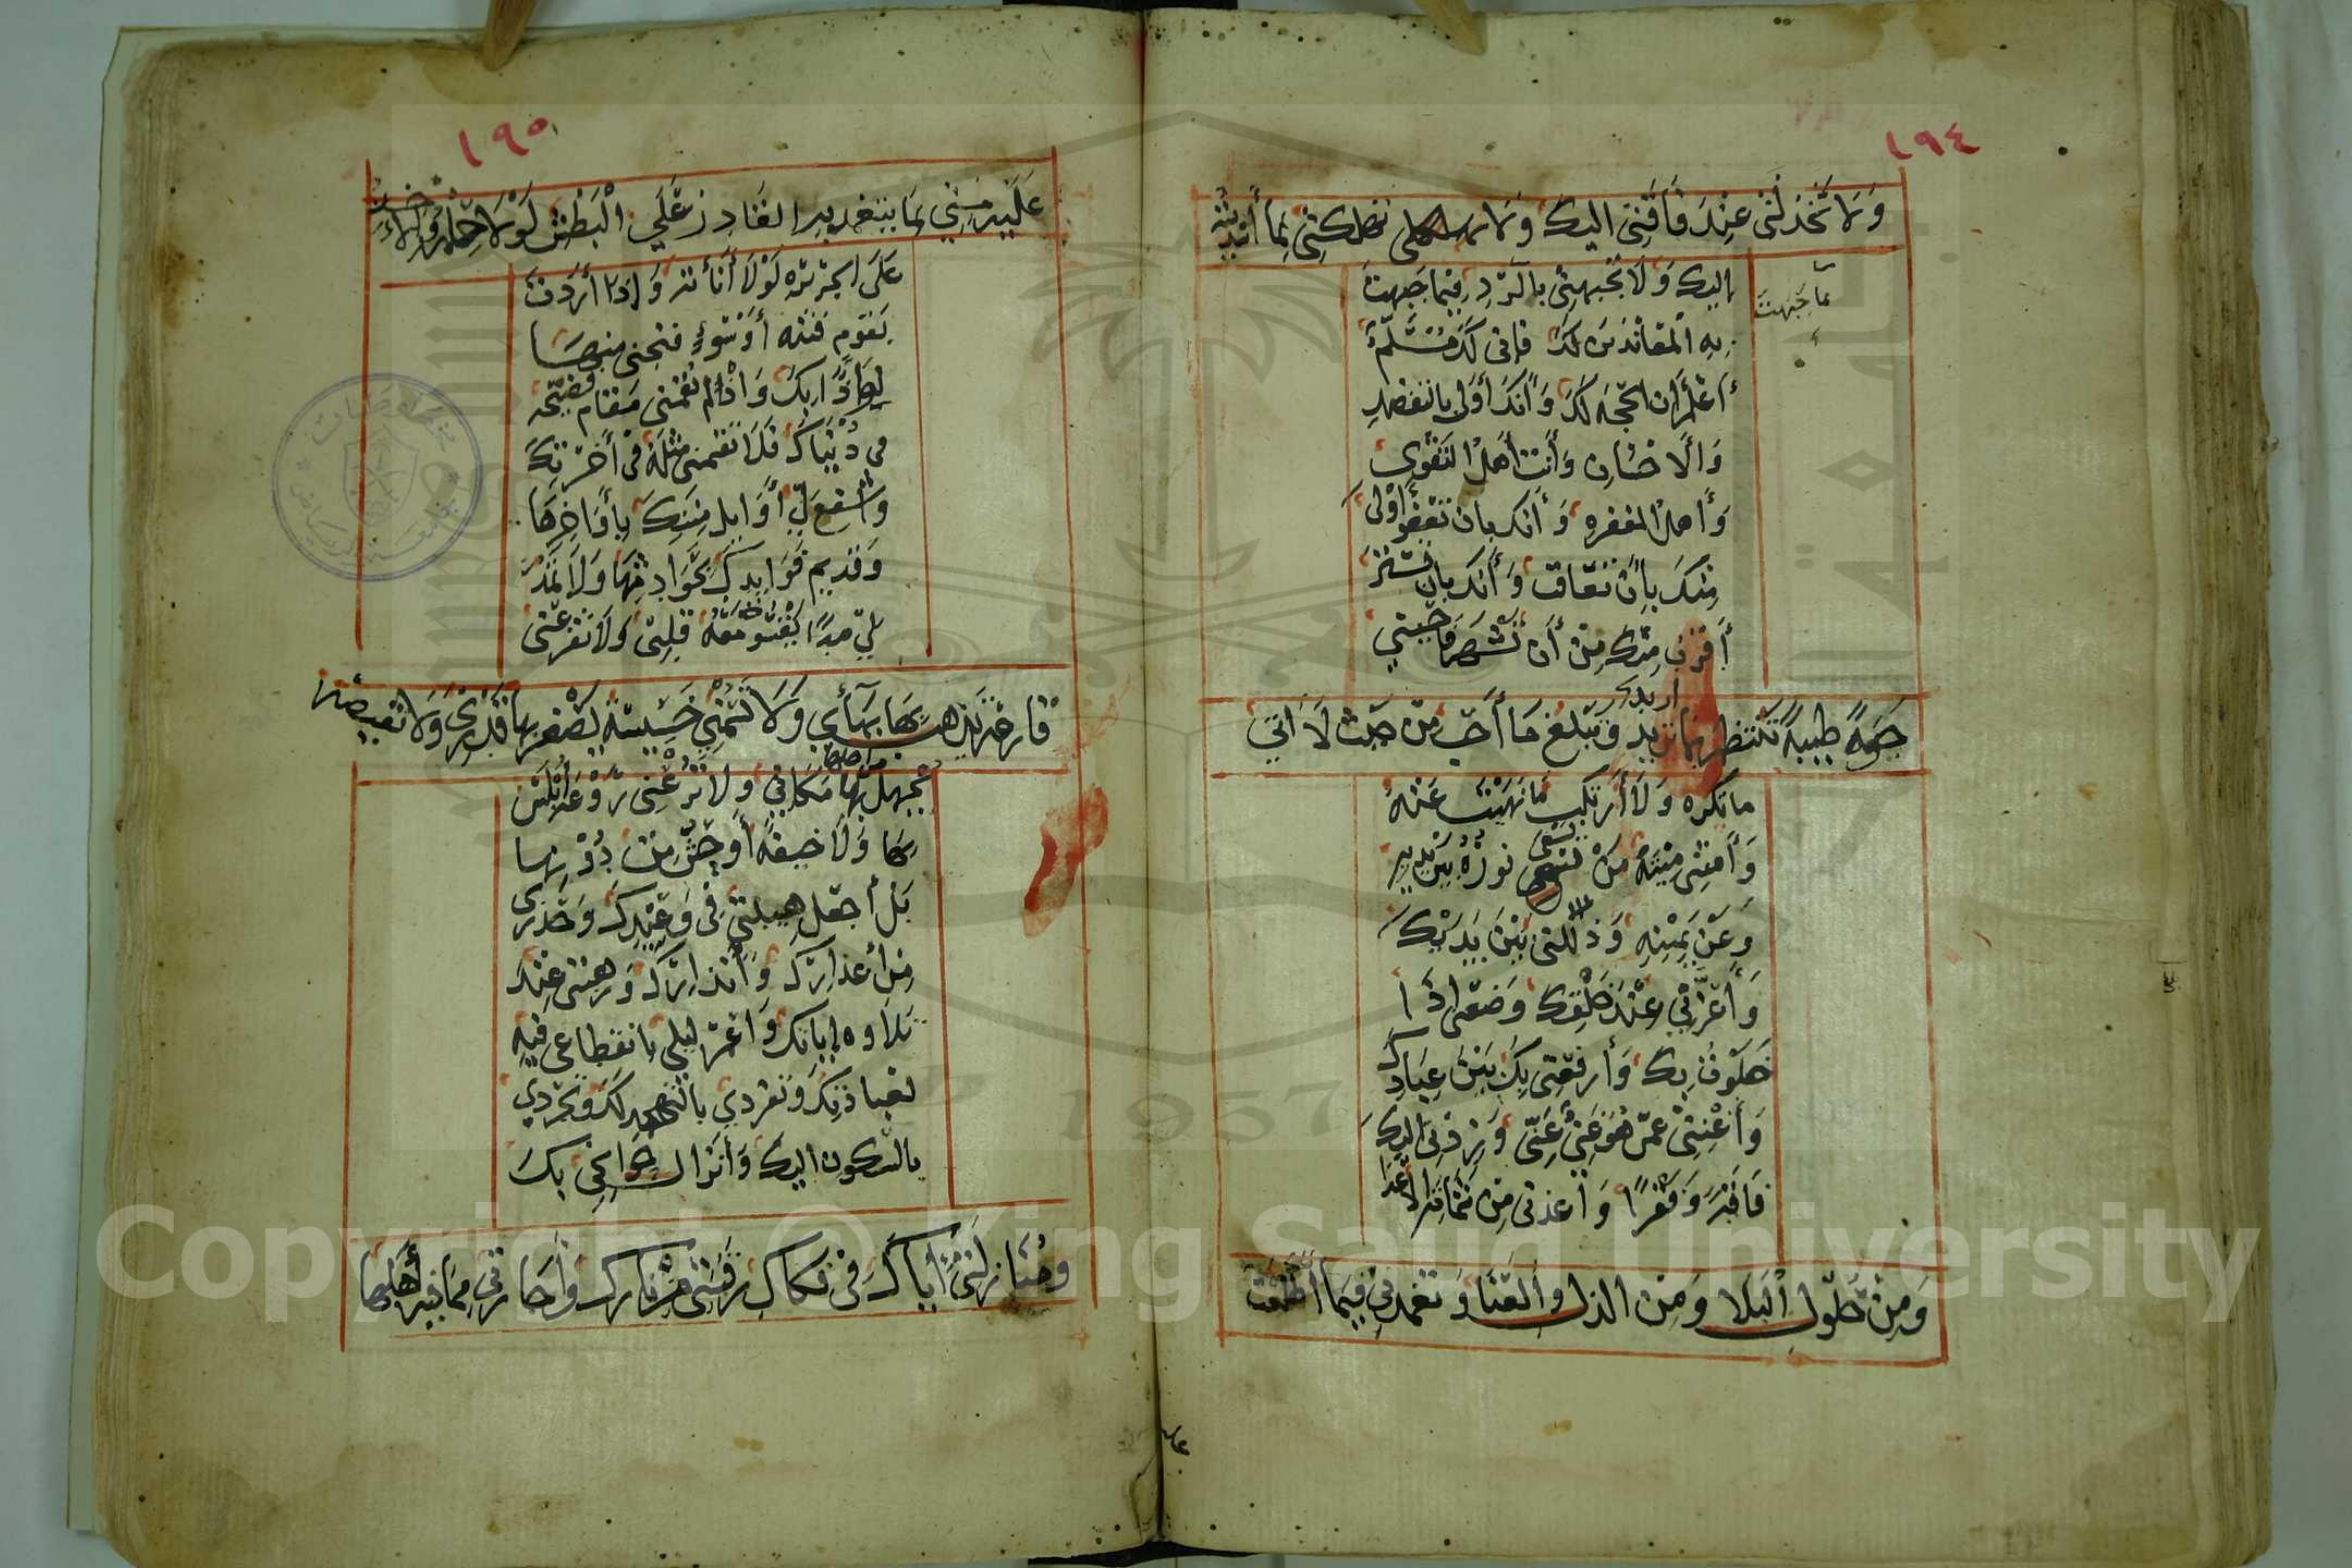 ١٩٤
وَلَا تَخْذُلْنِي عِنْدَ فَاقَتِي اليكَ وَلَا تهلكني بِمَا أَسْدَيْتُه
اليك وَلَا تَجْبَهْنِي بالرَّدِ فيما جَبَهتَ
بما جَبَهتَ
بِهِ المعاندين لَكَ فإني لَكَ مُسَلِّمٌ
أعْلَمُ ان الحجه لَكَ وَأَنكَ أَوْلى بالتفضل
وَالاحْسَانِ وَأَنتَ أهلُ التقْوى
وَأهلُ المغفره وَأنك بان تعْفُو أوْلى
مِنكَ بِأَن تعاقب وَأَنك بان تسْترَ
أَقرَبُ مِنكَ مِنْ أَن تشهرَ فاحْيني
حَيوةً طيبةً تَنْتظم بما اريد وتبْلغ مَا أُحِبُّ مِنْ حَيْث لَا اتي
ما تكره وَلَا أَرتكب مَا نَهَيْتَ عَنْهُ
وَأَمتْنِي مِيْتَةَ مَنْ يسْعَى نورُهُ بَيْن يديهِ
وَعَنْ يَمِيْنِهِ وَذللني بَيْنَ يَدَيْكَ
وَأَعِزَّنِي عِنْدَ خَلْقِكَ وَضَعْنِي اِذَا
خَلَوْتُ بِكَ وَأَرفعْنِي بَيْنَ عِبَادِكَ
وَأَغْنِنِي عَمَّن هُوَ غَنيٌّ عَنِّي وَزِدْنِي اليكَ
فَاقَةً وَفَقْرًا وَأَعذني مِن شماتة الاعْدَا
وَمِنْ حُلُولِ البَلا وَمِن الذل وَالعَنَا وَتغمدنِي فِيمَا اطلَعْتَ
١٩٥
عَلَيْهِ مِنِّي بِمَا يتغمد به القَادِرُ عَلَى الْبَطْشِ لَوْلَا حِلْمُهُ وَالآخذ
عَلَى الجريره لَوْلَا أَنَاتُهُ وَاذا أَردَتَ
بقَوْمٍ فتنه أَوْ سُوءٍ فنجني مِنهَا
لِوَاذًا بِكَ وَاذْ لم تُقِمْنِي مَقَام فَضِيْحَه
في دُنْيَاكَ فَلَا تقمني مِثْلَهُ في أخرتِكَ
وَاشفع لِي أَوَائِل مِنَنِكَ بِأَوَاخِرِهَا
وَقَديم فَوَائدِكَ بِحَوَادِثِهَا وَلَا تَمْدُدْ
لِي مدًّا يَقْسُو مَعَهُ قَلْبِي وَلَا تَقرعني
قارعَة يذهب بِهَا بَهَائِي وَلَا تَسُمْنِي خَسِيسَةً يَصْغر بها قَدْرِي وَلَا نقيصة
يُجْهَلُ بِهَا مَكَاني وَلَا تَرُعْنِي رَوْعَةً أُبْلِسُ
بِهَا وَلَا خيفَةً أَوجِسُ مِن دُوْنِهَا
بَلْ أجعَل هيبتي في وَعِيْدِكَ وَحَذري
مِن أعذارِك وَانذارِكَ وَرهبتي عِنْدَ
تلاوه اياتك وَاعْمر ليلي بايقاظي فيهِ
لعبادتِكَ وَتفردي بالتهجد لَكَ وَتجردي
بالسكون اليكَ وَأنزال حَوَائجي بكَ
وَمُنَازلَتي اياكَ فِي فكاك رَقَبتي مِنْ نَارك وَاجَارتي مِمَّا فيه أَهلها